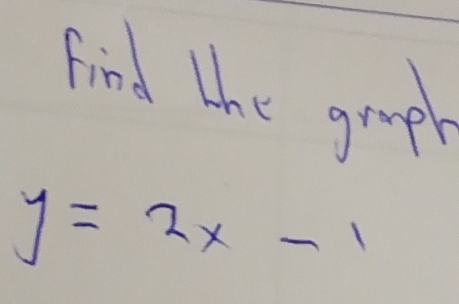 Find the graph
y = 2x - 1